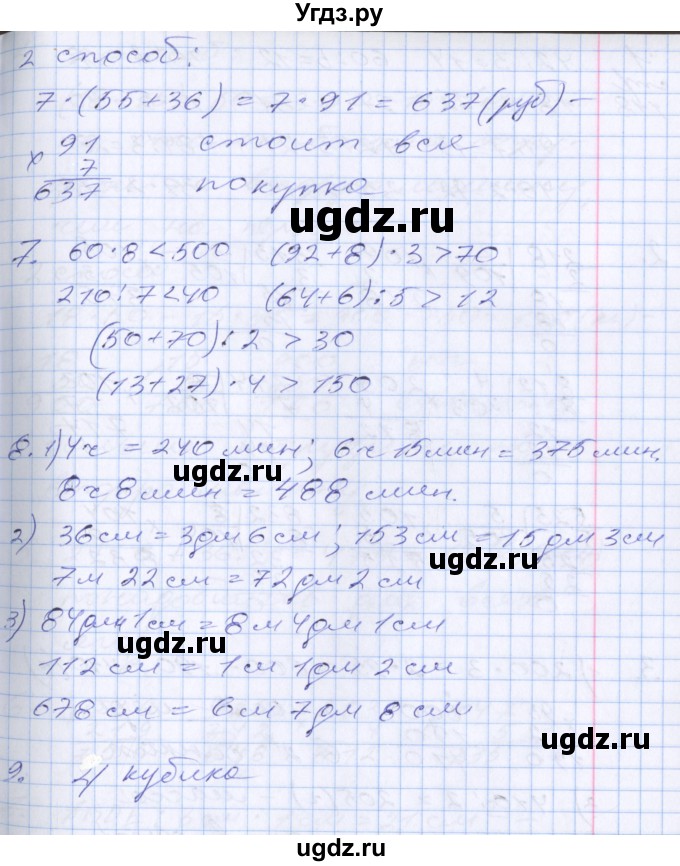 Угдз.ру
2 способ:
7·(55+36) = 7·91 = 637(руб) –
× 91 стоит вся
7
637 покупка
ugdz.ru
7. 60·8<500 (92+8)·3>70
210:7<40 (64+6):5 > 12
(50+70):2 > 30
(13+27)·4 > 150
8. 1) 4ч = 240 мин; 6ч 15мин = 375 мин.
ugdz.ru
8ч 8мин = 488 мин.
2) 36см = 3дм 6см; 153см = 15дм 3см
ugdz.ru
7м 22см = 72дм 2см
3) 84дм 1см = 8м 4дм 1см
ugdz.ru
112см = 1м 1дм 2см
678см = 6м 7дм 8см
ugdz.ru
9. 4 кубика
ugdz.ru